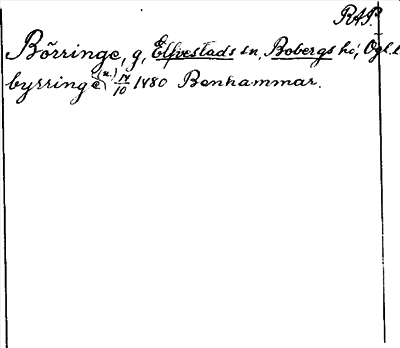 RAP
Börringe, g, Elfvestads sn, Bobergs hd, Ögl.
byrringe (n.) 14/10 1480 Benhammar.